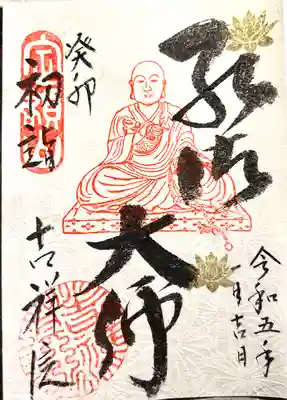 令和五年
一月吉日
弘法大師
癸卯
初詣
吉祥院